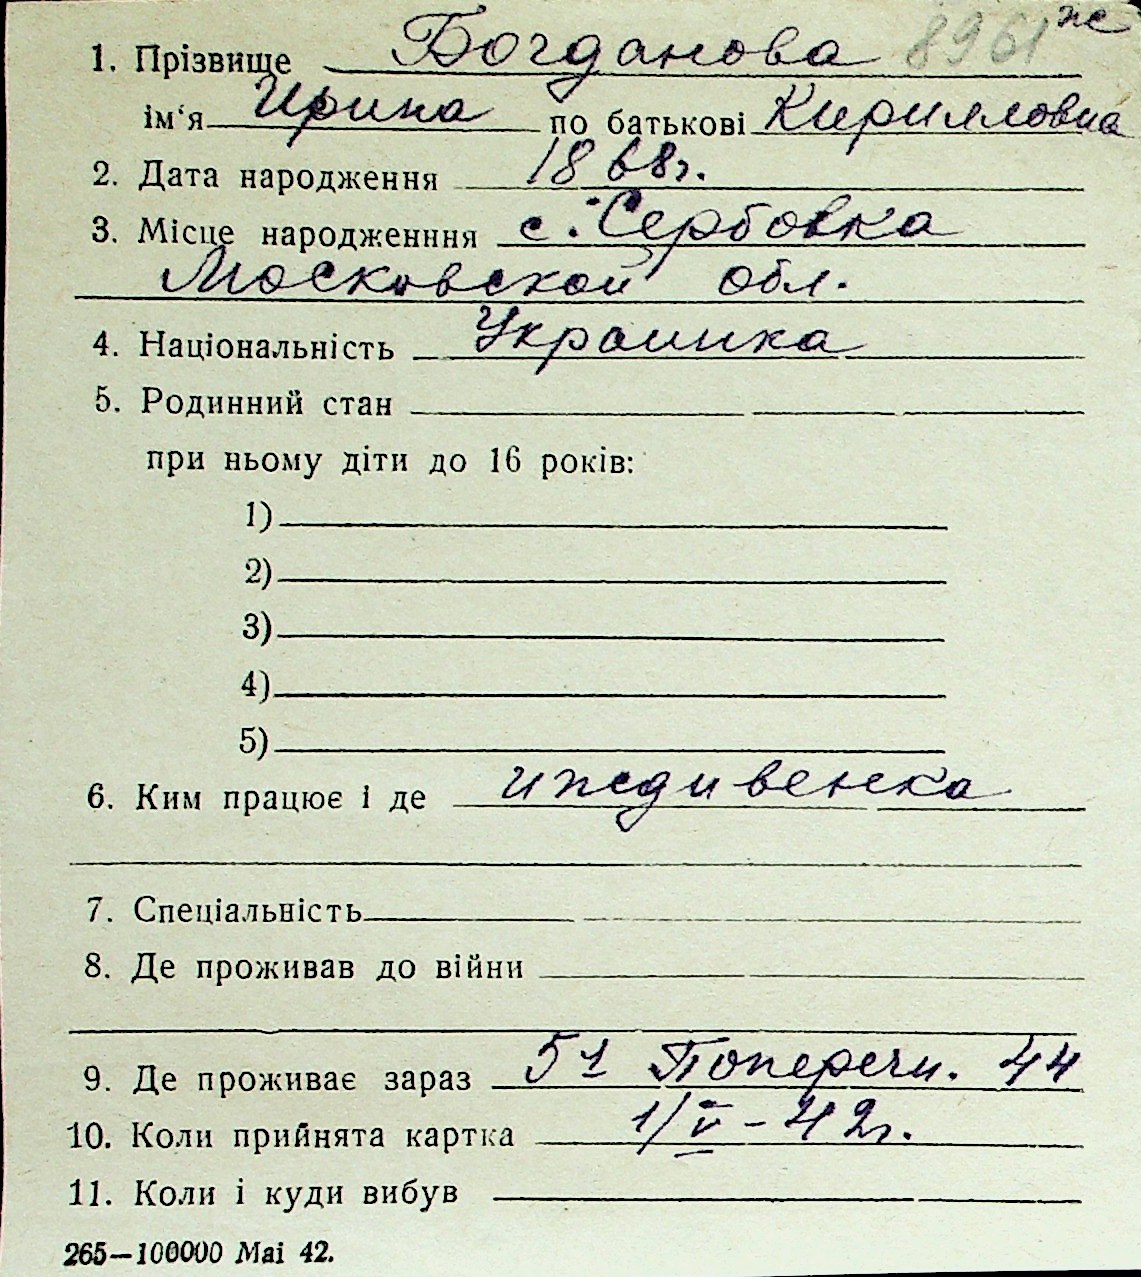 8961 ж
1. Прізвище Богданова
ім'я Ирина по батькові Кирилловна
2. Дата народження 1868г.
3. Місце народженння с. Сербовка
Московской обл.
4. Національність Украинка
5. Родинний стан
при ньому діти до 16 років:
1)
2)
3)
4)
5)
6. Ким працює і де иждивенка
7. Спеціальність
8. Де проживав до війни
9. Де проживає зараз 51 Попереч. 44
10. Коли прийнята картка 1/V-42г.
11. Коли і куди вибув
265—100000 Маі 42.